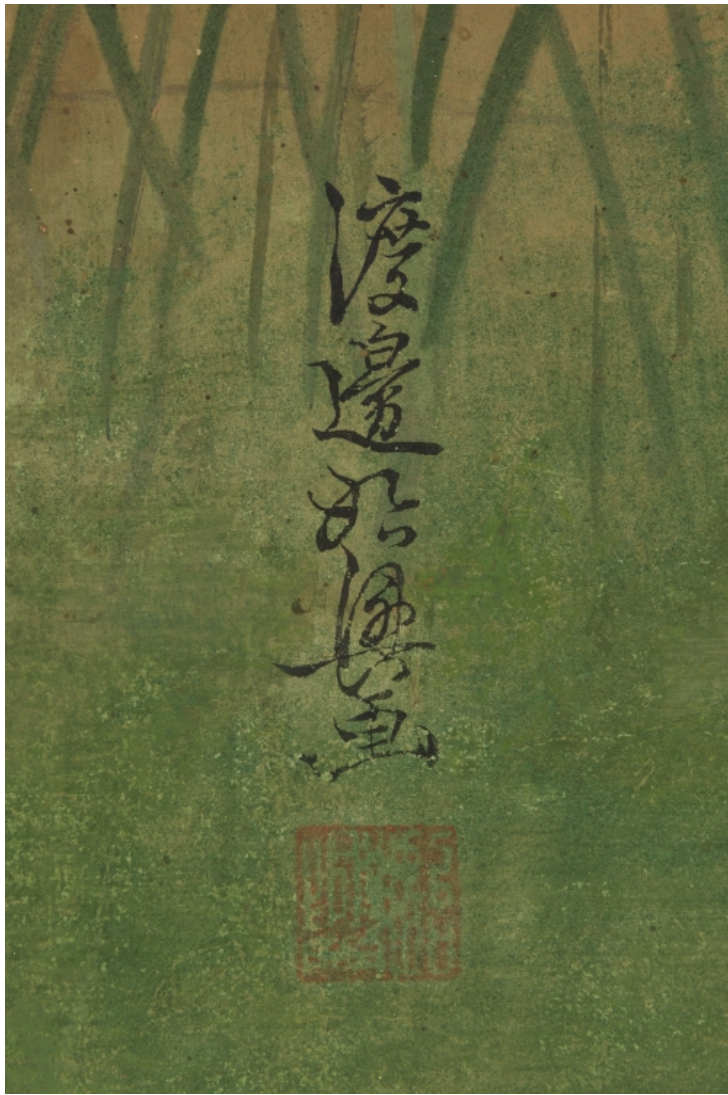 渡邊始興畫